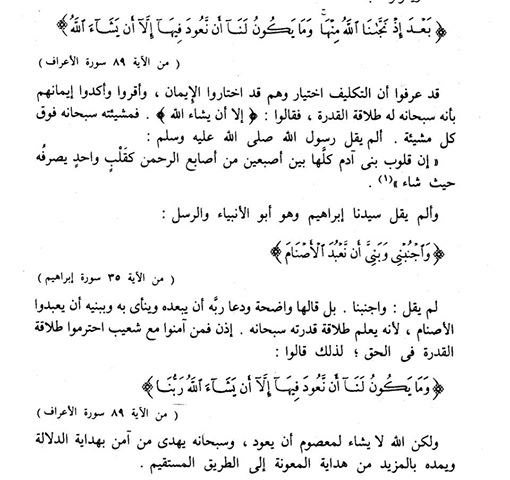 ﴿ بَعْدَ إِذْ نَجَّىٰنَا ٱللَّهُ مِنْهَا ۚ وَمَا يَكُونُ لَنَآ أَن نَّعُودَ فِيهَآ إِلَّآ أَن يَشَآءَ ٱللَّهُ ﴾
( من الآية ٨٩ سورة الأعراف )
قد عرفوا أن التكليف اختيار وهم قد اختاروا الإيمان ، وأقروا وأكدوا إيمانهم
بأنه سبحانه له طلاقة القدرة ، فقالوا : ﴿ إلا أن يشاء الله ﴾ . فمشيئته سبحانه فوق
كل مشيئة . ألم يقل رسول الله صلى الله عليه وسلم :
« إن قلوب بنى آدم كلَّها بين أصبعين من أصابع الرحمن كقَلْبٍ واحدٍ يصرفُه
حيث شاء »(١) .
وألم يقل سيدنا إبراهيم وهو أبو الأنبياء والرسل :
﴿ وَٱجْنُبْنِى وَبَنِىَّ أَن نَّعْبُدَ ٱلْأَصْنَامَ ﴾
( من الآية ٣٥ سورة إبراهيم )
لم يقل : واجنبنا . بل قالها واضحة ودعا ربَّه أن يبعده وينأى به وببنيه أن يعبدوا
الأصنام ، لأنه يعلم طلاقة قدرته سبحانه . إذن فمن آمنوا مع شعيب احترموا طلاقة
القدرة فى الحق ؛ لذلك قالوا :
﴿ وَمَا يَكُونُ لَنَآ أَن نَّعُودَ فِيهَآ إِلَّآ أَن يَشَآءَ ٱللَّهُ رَبُّنَا ﴾
( من الآية ٨٩ سورة الأعراف )
ولكن الله لا يشاء لمعصوم أن يعود ، وسبحانه يهدى من آمن بهداية الدلالة
ويمده بالمزيد من هداية المعونة إلى الطريق المستقيم .